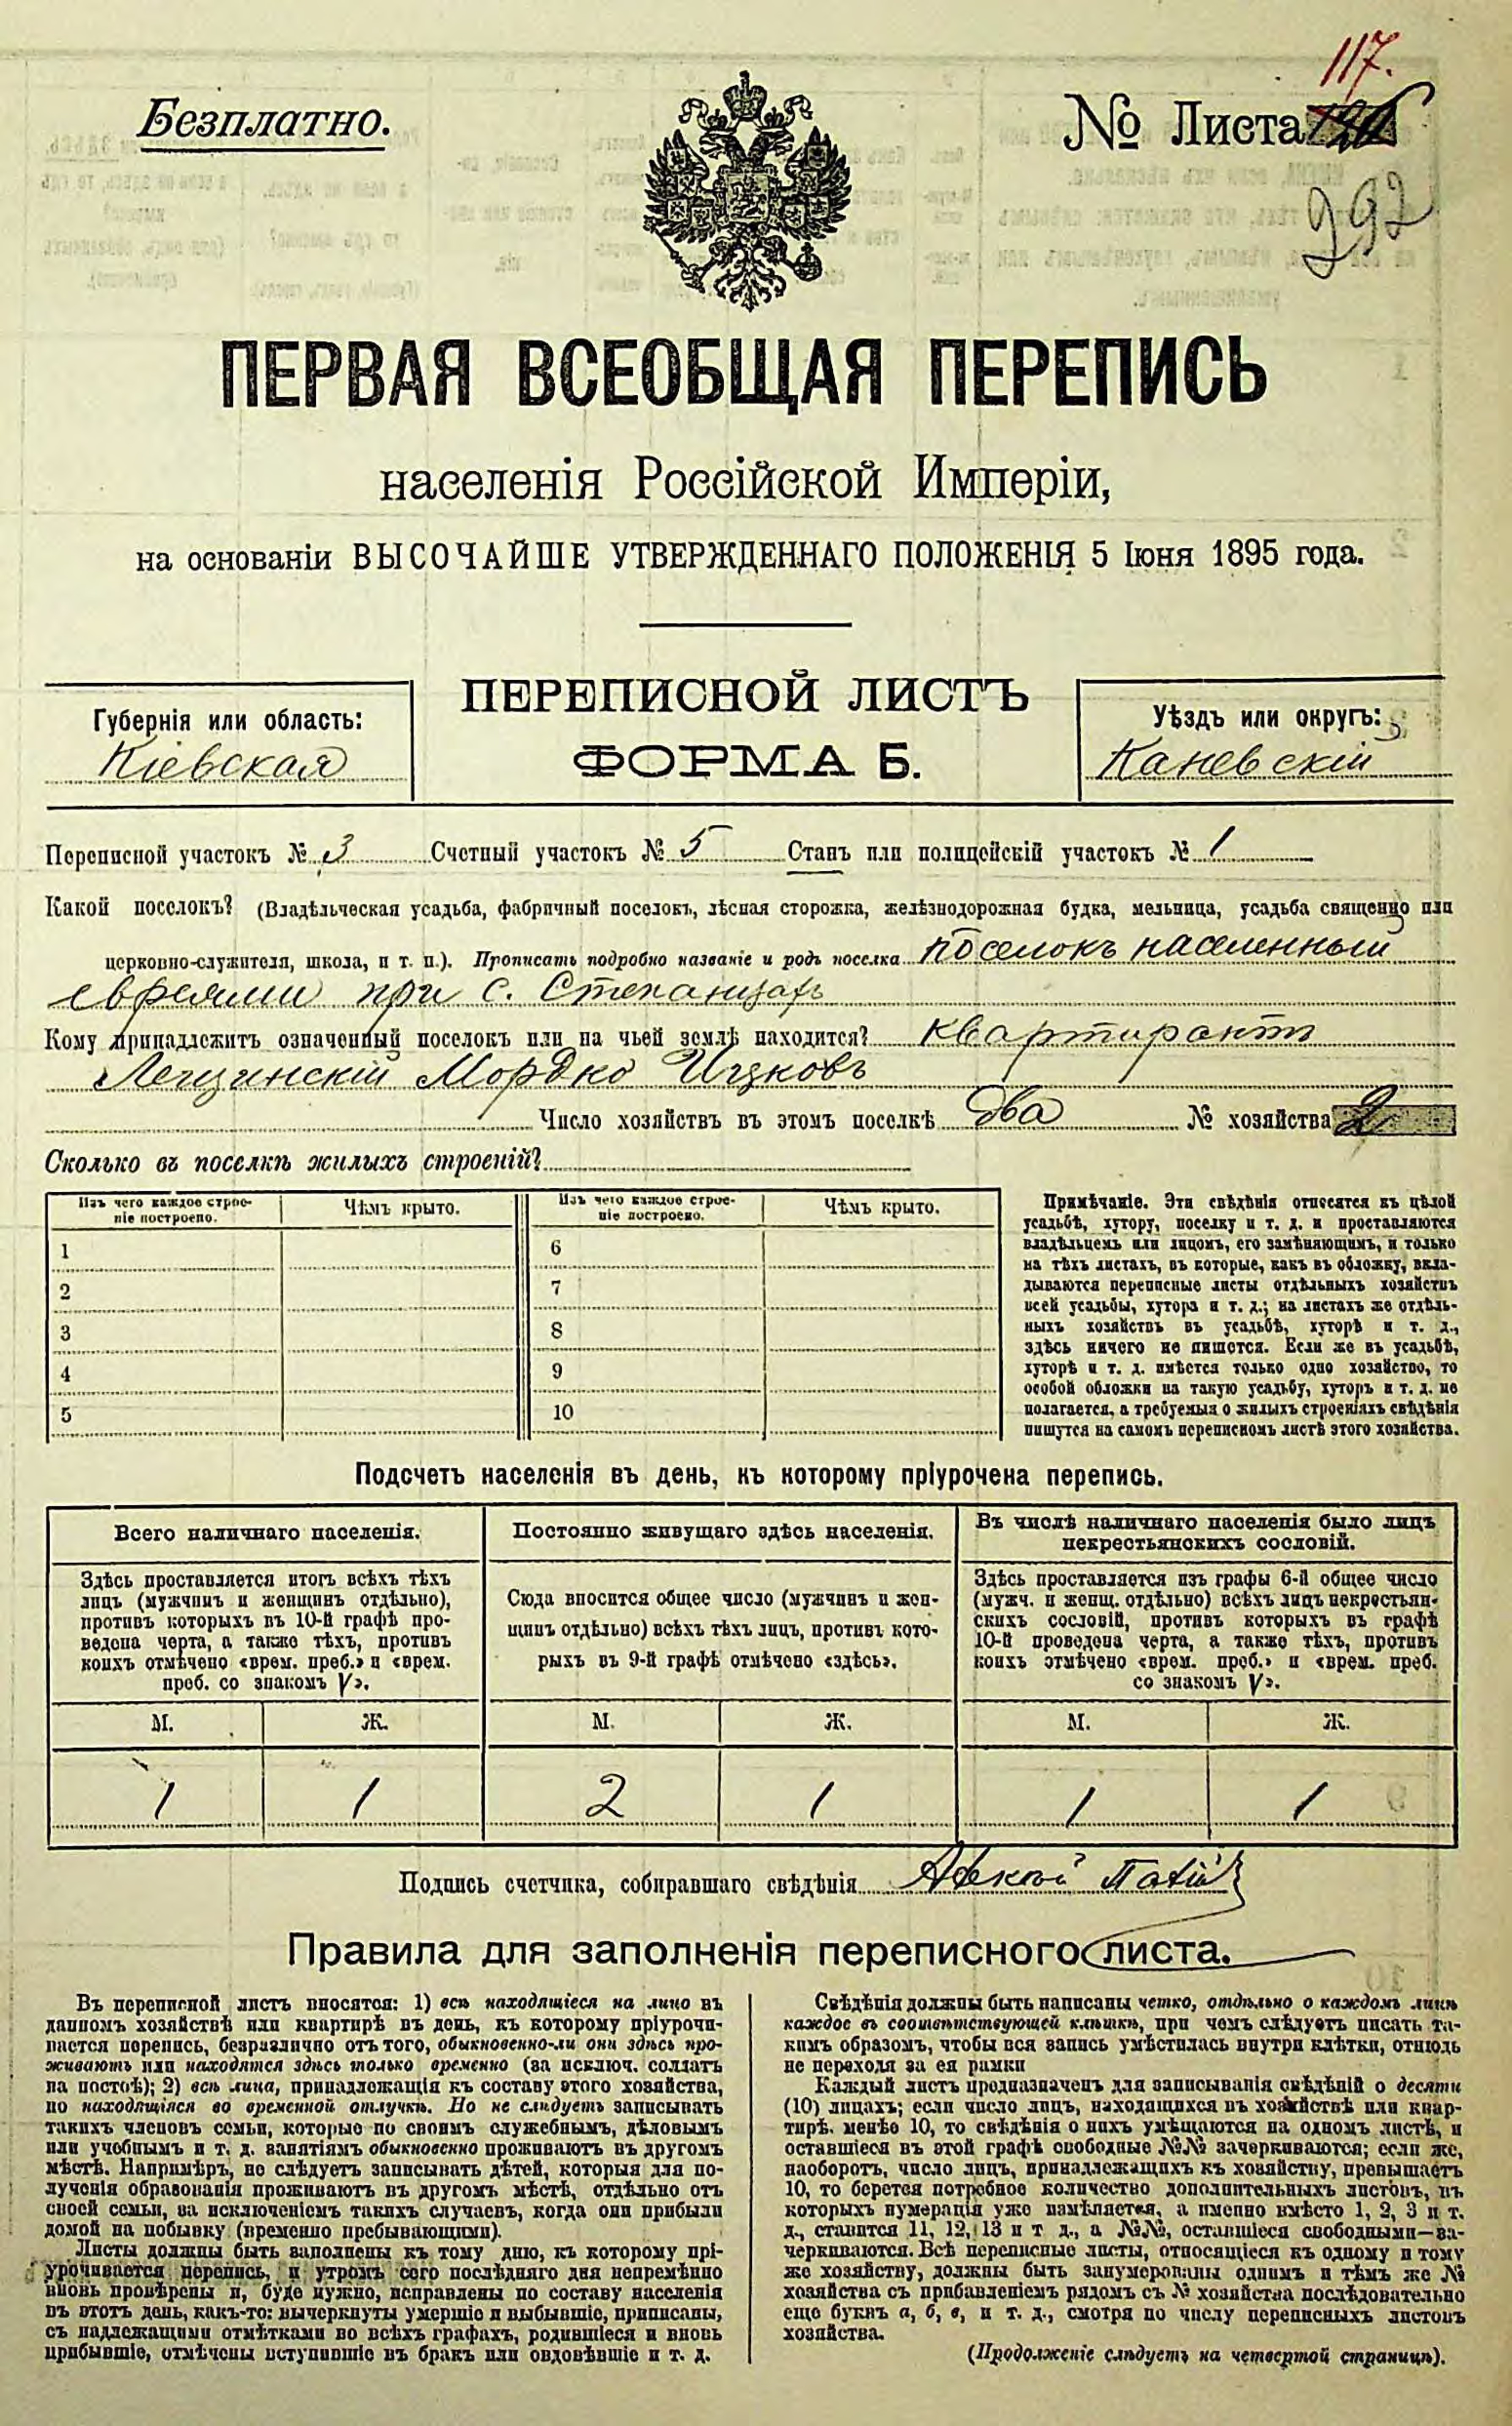 117.
Безплатно.
№ Листа
292
ПЕРВАЯ ВСЕОБЩАЯ ПЕРЕПИСЬ
населенія Россійской Имперіи,
на основаніи ВЫСОЧАЙШЕ УТВЕРЖДЕННАГО ПОЛОЖЕНІЯ 5 Іюня 1895 года.
ПЕРЕПИСНОЙ ЛИСТЪ
ФОРМА Б.
Губернія или область:
Кіевская
Уѣздъ или округъ:
Каневскій
Переписной участокъ № 3 Счетный участокъ № 5 Станъ или полицейскій участокъ № 1
Какой поселокъ? (Владѣльческая усадьба, фабричный поселокъ, лѣсная сторожка, желѣзнодорожная будка, мельница, усадьба священно или
церковно-служителя, школа, и т. п.). Прописать подробно названіе и родъ поселка поселокъ населенный
евреями при с. Степанцахъ
Кому принадлежитъ означенный поселокъ или на чьей землѣ находится? квартирантъ
Лещинскій Мордко Ицковъ
Число хозяйствъ въ этомъ поселкѣ два № хозяйства 2
Сколько въ поселкѣ жилыхъ строеній?
Изъ чего каждое строе-
ніе построено.
Чѣмъ крыто.
Изъ чего каждое строе-
ніе построено.
Чѣмъ крыто.
1
2
3
4
5
6
7
8
9
10
Примѣчаніе. Эти свѣдѣнія относятся къ цѣлой
усадьбѣ, хутору, поселку и т. д. и проставляются
владѣльцемъ или лицомъ, его замѣняющимъ, и только
на тѣхъ листахъ, въ которые, какъ въ обложку, вкла-
дываются переписные листы отдѣльныхъ хозяйствъ
всей усадьбы, хутора и т. д.; на листахъ же отдѣль-
ныхъ хозяйствъ въ усадьбѣ, хуторѣ и т. д.,
здѣсь ничего не пишется. Если же въ усадьбѣ,
хуторѣ и т. д. имѣется только одно хозяйство, то
особой обложки на такую усадьбу, хуторъ и т. д. не
полагается, а требуемыя о жилыхъ строеніяхъ свѣдѣнія
пишутся на самомъ переписномъ листѣ этого хозяйства.
Подсчетъ населенія въ день, къ которому пріурочена перепись.
Всего наличнаго населенія.
Здѣсь проставляется итогъ всѣхъ тѣхъ
лицъ (мужчинъ и женщинъ отдѣльно),
противъ которыхъ въ 10-й графѣ про-
ведена черта, а также тѣхъ, противъ
коихъ отмѣчено «врем. преб.» и «врем.
преб. со знакомъ V».
Постоянно живущаго здѣсь населенія.
Сюда вносится общее число (мужчинъ и жен-
щинъ отдѣльно) всѣхъ тѣхъ лицъ, противъ кото-
рыхъ въ 9-й графѣ отмѣчено «здѣсь».
Въ числѣ наличнаго населенія было лицъ
некрестьянскихъ сословій.
Здѣсь проставляется изъ графы 6-й общее число
(мужч. и женщ. отдѣльно) всѣхъ лицъ некрестьян-
скихъ сословій, противъ которыхъ въ графѣ
10-й проведена черта, а также тѣхъ, противъ
коихъ отмѣчено «врем. преб.» и «врем. преб.
со знакомъ V».
М. Ж. М. Ж. М. Ж.
1 1 2 1 1 1
Подпись счетчика, собиравшаго свѣдѣнія
Правила для заполненія переписного листа.
Въ переписной листъ вносятся: 1) всѣ находящіеся на лицо въ
данномъ хозяйствѣ или квартирѣ въ день, къ которому пріурочи-
вается перепись, безразлично отъ того, обыкновенно-ли они здѣсь про-
живаютъ или находятся здѣсь только временно (за исключ. солдатъ
на постоѣ); 2) всѣ лица, принадлежащія къ составу этого хозяйства,
но находящіяся во временной отлучкѣ. Но не слѣдуетъ записывать
такихъ членовъ семьи, которые по своимъ служебнымъ, дѣловымъ
или учебнымъ и т. д. занятіямъ обыкновенно проживаютъ въ другомъ
мѣстѣ. Напримѣръ, не слѣдуетъ записывать дѣтей, которыя для по-
лученія образованія проживаютъ въ другомъ мѣстѣ, отдѣльно отъ
своей семьи, за исключеніемъ такихъ случаевъ, когда они прибыли
домой на побывку (временно пребывающими).
Листы должны быть заполнены къ тому дню, къ которому прі-
урочивается перепись, и утромъ сего послѣдняго дня непремѣнно
вновь провѣрены и, буде нужно, исправлены по составу населенія
въ этотъ день, какъ-то: вычеркнуты умершіе и выбывшіе, приписаны,
съ надлежащими отмѣтками во всѣхъ графахъ, родившіеся и вновь
прибывшіе, отмѣчены вступившіе въ бракъ или овдовѣвшіе и т. д.
Свѣдѣнія должны быть написаны четко, отдѣльно о каждомъ лицѣ
каждое въ соотвѣтствующей клѣткѣ, при чемъ слѣдуетъ писать та-
кимъ образомъ, чтобы вся запись умѣстилась внутри клѣтки, отнюдь
не переходя за ея рамки
Каждый листъ предназначенъ для записыванія свѣдѣній о десяти
(10) лицахъ; если число лицъ, находящихся въ хозяйствѣ или квар-
тирѣ. менѣе 10, то свѣдѣнія о нихъ умѣщаются на одномъ листѣ, и
оставшіеся въ этой графѣ свободные №№ зачеркиваются; если же,
наоборотъ, число лицъ, принадлежащихъ къ хозяйству, превышаетъ
10, то берется потребное количество дополнительныхъ листовъ, въ
которыхъ нумерація уже измѣняется, а именно вмѣсто 1, 2, 3 и т.
д., ставится 11, 12, 13 и т д., а №№, оставшіеся свободными—за-
черкиваются. Всѣ переписные листы, относящіеся къ одному и тому
же хозяйству, должны быть занумерованы однимъ и тѣмъ же №
хозяйства съ прибавленіемъ рядомъ съ № хозяйства послѣдовательно
еще буквъ а, б, в, и т. д., смотря по числу переписныхъ листовъ
хозяйства.
(Продолженіе слѣдуетъ на четвертой страницѣ).